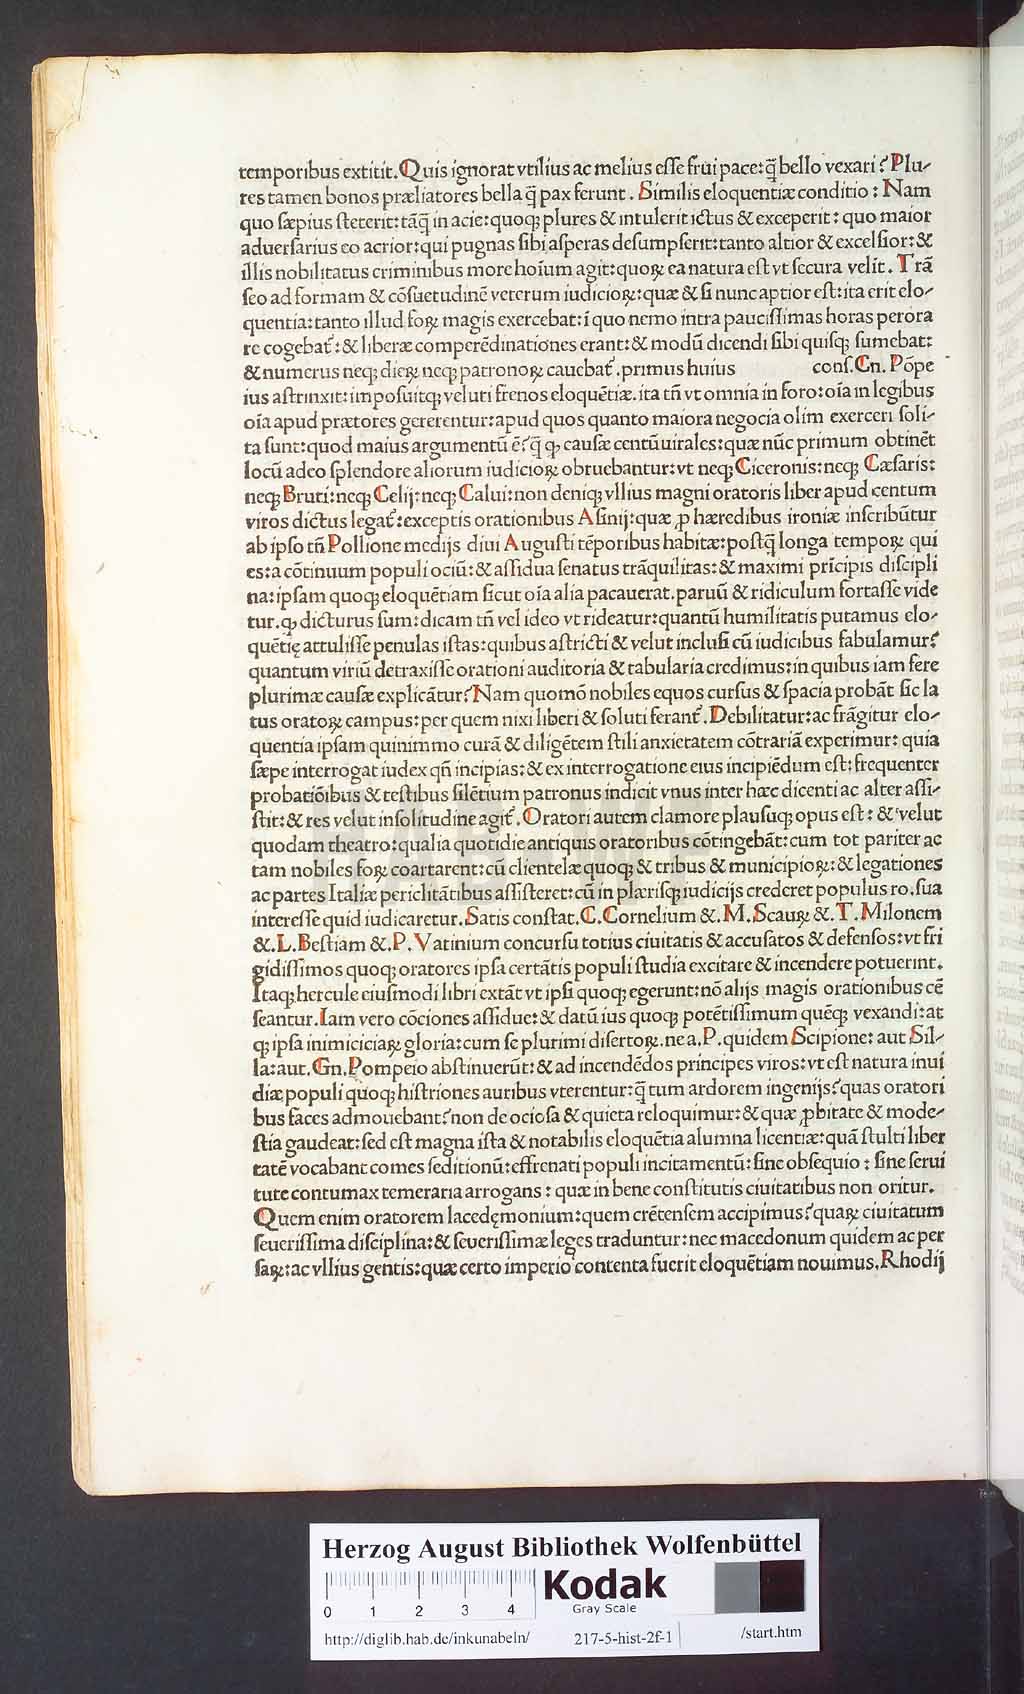 temporibus extitit. Quis ignorat vtilius ac melius eſſe frui pace: q̃ bello vexari? Plu-
res tamen bonos præliatores bella q̃ pax ferunt. Similis eloquentiæ conditio: Nam
quo ſæpius ſteterit: tãq̃ in acie: quoqꝫ plures & intulerit ictus & exceperit: quo maior
aduerſarius eo acrior: qui pugnas ſibi aſperas deſumpſerit: tanto altior & excelſior: &
illis nobilitatus criminibus more hoĩum agit: quoꝝ ea natura eſt vt ſecura velit. Trã
ſeo ad formam & cõſuetudinẽ veterum iudicioꝝ: quæ & ſi nunc aptior eſt: ita erit elo-
quentia: tanto illud foꝝ magis exercebat: ĩ quo nemo intra pauciſſimas horas perora
re cogebat᷑: & liberæ comperẽdinationes erant: & modũ dicendi ſibi quiſqꝫ ſumebat:
& numerus neqꝫ dieꝝ neqꝫ patronoꝝ cauebat᷑. primus huius conſ. Cn. Põpe
ius aſtrinxit: impoſuitqꝫ veluti frenos eloquẽtiæ. ita tñ vt omnia in foro: oĩa in legibus
oĩa apud prætores gererentur: apud quos quanto maiora negocia olim exerceri ſoli-
ta ſunt: quod maius argumentũ ẽ? q̃ ꝙ cauſæ centũuirales: quæ nũc primum obtinẽt
locũ adeo ſplendore aliorum iudicioꝝ obruebantur: vt neqꝫ Ciceronis: neqꝫ Cæſaris:
neqꝫ Bruti: neqꝫ Celij: neqꝫ Calui: non deniqꝫ vllius magni oratoris liber apud centum
viros dictus legat᷑: exceptis orationibus Aſinij: quæ ꝓ hæredibus ironiæ inſcribũtur
ab ipſo tñ Pollione medijs diui Auguſti tẽporibus habitæ: poſtq̃ longa tempoꝝ qui
es: a cõtinuum populi ociũ: & aſſidua ſenatus trãquilitas: & maximi prĩcipis diſcipli
na: ipſam quoqꝫ eloquẽtiam ſicut oĩa alia pacauerat. paruũ & ridiculum fortaſſe vide
tur. ꝙ dicturus ſum: dicam tñ vel ideo vt rideatur: quantũ humilitatis putamus elo-
quẽtię attuliſſe penulas iſtas: quibus aſtricti & velut incluſi cũ iudicibus fabulamur?
quantum viriũ detraxiſſe orationi auditoria & tabularia credimus: in quibus iam fere
plurimæ cauſæ explicãtur? Nam quomõ nobiles equos curſus & ſpacia probãt ſic la
tus oratoꝝ campus: per quem nixi liberi & ſoluti ferant᷑. Debilitatur: ac frãgitur elo-
quentia ipſam quinimmo curã & diligẽtem ſtili anxietatem cõtrariã experimur: quia
ſæpe interrogat iudex qñ incipias: & ex interrogatione eius incipiẽdum eſt: frequenter
probatiõibus & teſtibus ſilẽtium patronus indicit vnus inter hæc dicenti ac alter aſſi-
ſtit: & res velut in ſolitudine agit᷑. Oratori autem clamore plauſuqꝫ opus eſt: & velut
quodam theatro: qualia quotidie antiquis oratoribus cõtingebãt: cum tot pariter ac
tam nobiles foꝝ coartarent: cũ clientelæ quoqꝫ & tribus & municipioꝝ: & legationes
ac partes Italiæ periclitãtibus aſſiſteret: cũ in pleriſqꝫ iudicijs crederet populus ro. ſua
intereſſe quid iudicaretur. Satis conſtat. C. Cornelium &. M. Scauꝝ &. T. Milonem
&. L. Beſtiam &. P. Vatinium concurſu totius ciuitatis & accuſatos & defenſos: vt fri
gidiſſimos quoqꝫ oratores ipſa certãtis populi ſtudia excitare & incendere potuerint.
Itaqꝫ hercule eiuſmodi libri extãt vt ipſi quoqꝫ egerunt: nõ alijs magis orationibus cẽ
ſeantur. Iam vero cõciones aſſidue: & datũ ius quoqꝫ potẽtiſſimum quẽqꝫ vexandi: at
qꝫ ipſa inimiciciaꝝ gloria: cum ſe plurimi diſertoꝝ. ne a. P. quidem Scipione: aut Sil-
la: aut. Gn. Pompeio abſtinuerũt: & ad incendẽdos principes viros: vt eſt natura inui
diæ populi quoqꝫ hiſtriones auribus vterentur: q̃ tum ardorem ingenijs? quas oratori
bus faces admouebant? non de ocioſa & quieta re loquimur: & quæ ꝓbitate & mode-
ſtia gaudeat: ſed eſt magna iſta & notabilis eloquẽtia alumna licentiæ: quã ſtulti liber
tatẽ vocabant comes ſeditionũ: effrenati populi incitamentũ: ſine obſequio: ſine ſerui
tute contumax temeraria arrogans: quæ in bene conſtitutis ciuitatibus non oritur.
Quem enim oratorem lacedęmonium: quem crẽtenſem accipimus? quaꝝ ciuitatum
ſeueriſſima diſciplina: & ſeueriſſimæ leges traduntur: nec macedonum quidem ac per
ſaꝝ: ac vllius gentis: quæ certo imperio contenta fuerit eloquẽtiam nouimus. Rhodij
Herzog August Bibliothek Wolfenbüttel
0 1 2 3 4
Kodak
Gray Scale
http://diglib.hab.de/inkunabeln/ 217-5-hist-2f-1 /start.htm